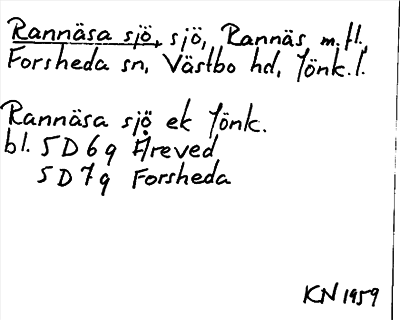 Rannäsa sjö, sjö, Rannäs m.fl.,
Forsheda sn, Västbo hd, Jönk.l.
Rannäsa sjö ek Jönk.
bl. 5D6g Åreved
5D7g Forsheda
KN 1959